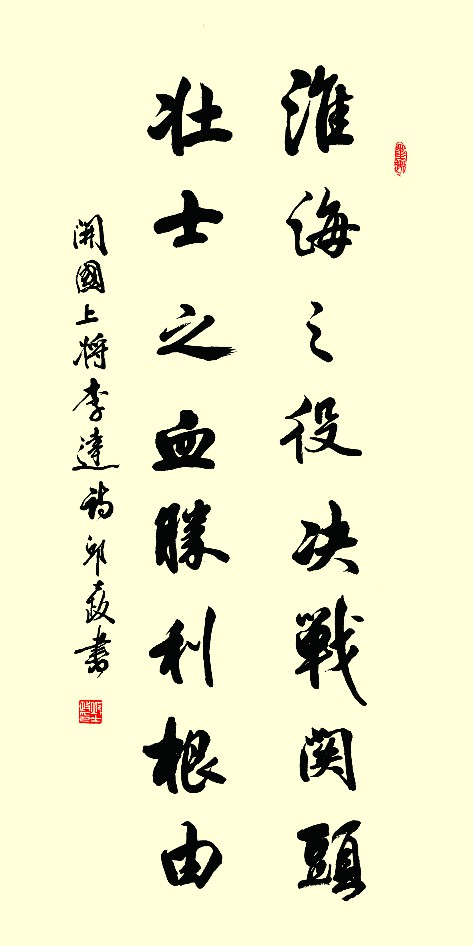 淮海之役决戰関頭
壮士之血勝利根由
開國上将李達詩邱書